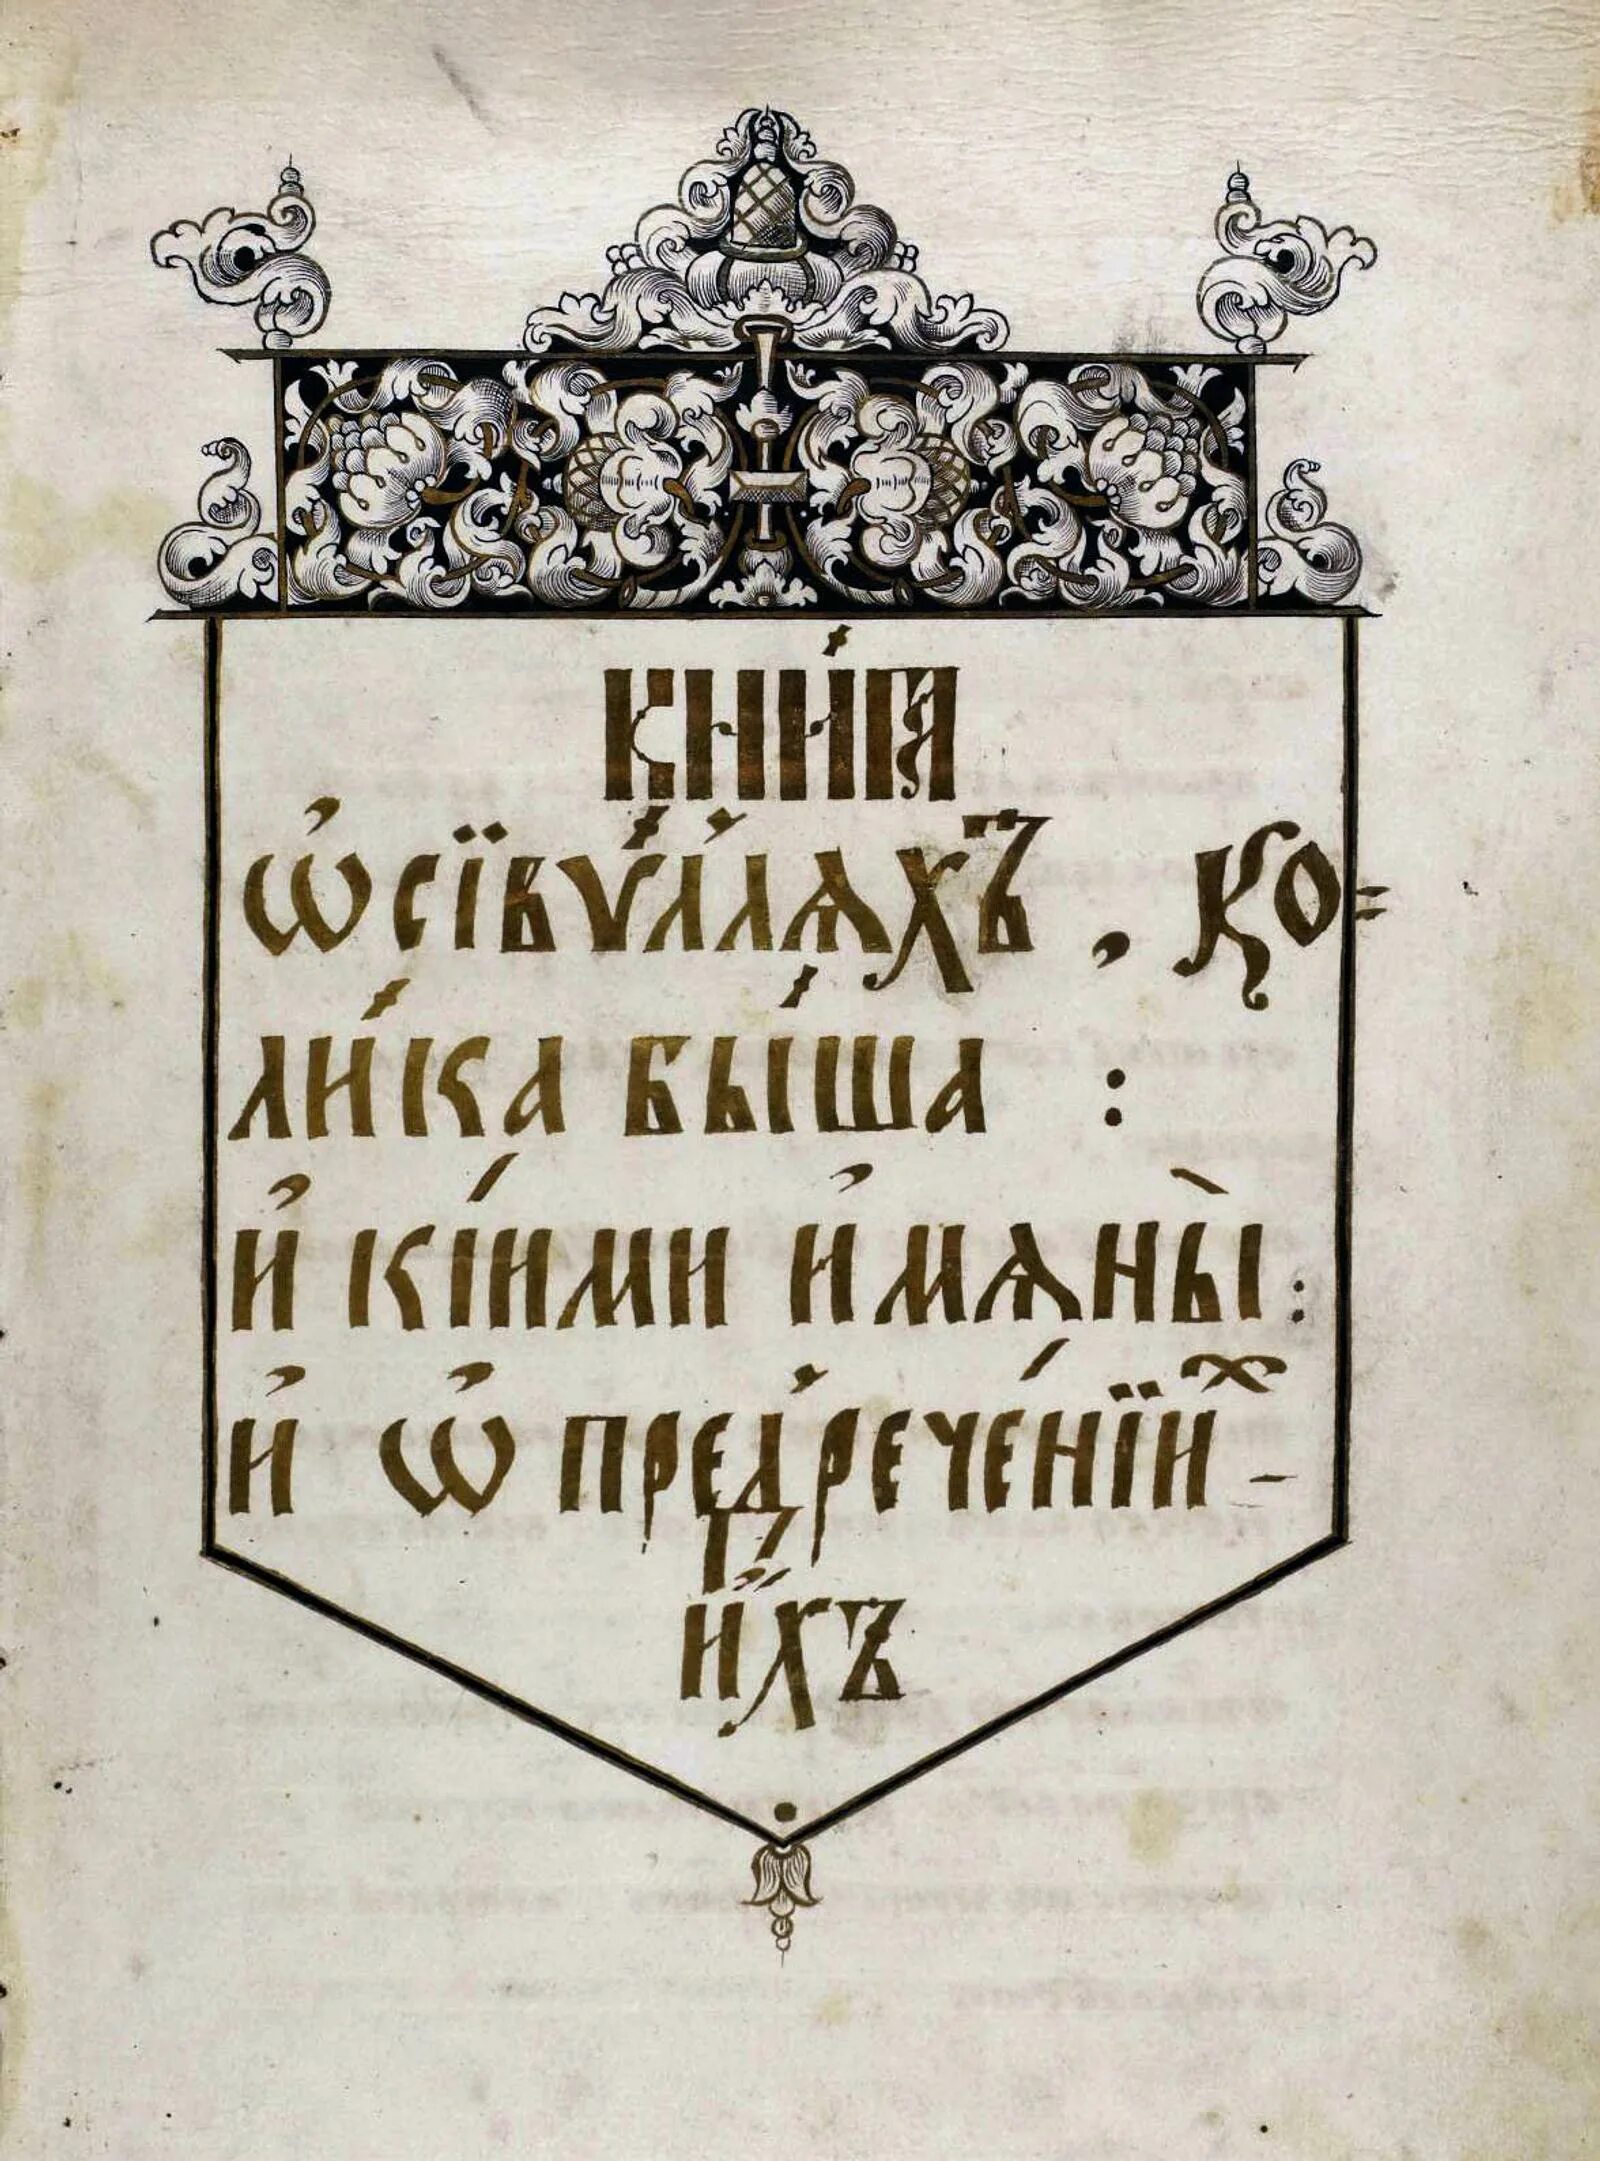 Кни́га
ѡ҆ сїву́ллѧхъ, ко=
ли́ка бы́ша :
и҆ кі́ими и҆мѧны̀ :
и҆ ѡ҆ предрече́нїи -
и҆́хъ